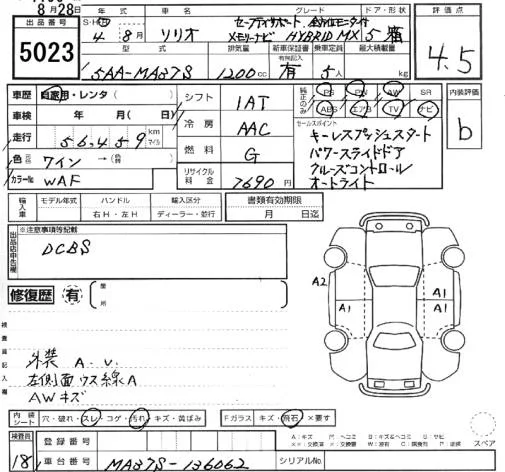 8月28日
出品番号
5023
年式 車名 グレード ドア・形状 評価点
4年 8月 ソリオ セーフティサポート、全方位モニター付
メモリーナビ HYBRID MX 5 箱
4.5
型式 排気量 新車保証書 乗車定員 最大積載量
有無記入
5AA-MA37S 1200cc 有 5人 kg
車歴 自家用・レンタ( )
車検 年 月( 日)
走行 56,459 km マイル
色 ワイン →
カラーNo WAF
シフト 1AT
冷房 AAC
燃料 G
リサイクル料金 7690円
純正のみ PS PW AW SR
ABS エアB TV ナビ
内装評価
b
セールスポイント
キーレスプッシュスタート
パワースライドドア
クルーズコントロール
オートライト
輸入車 モデル年式 ハンドル 輸入区分 書類有効期限
年 右H・左H ディーラー・並行 月 日迄
出品店申告欄 ※注意事項等記載
DCBS
修復歴 有 箇所
検査員記入欄
外装 A.U.
左側面ウス線A
AWキズ
A2 A1 A1
内装シート 穴・破れ・スレ・コゲ・汚れ・キズ・黄ばみ Fガラス キズ・飛石・×要す
スペア
検査員
18
登録番号
車台番号 MA37S-136062 シリアルNo.